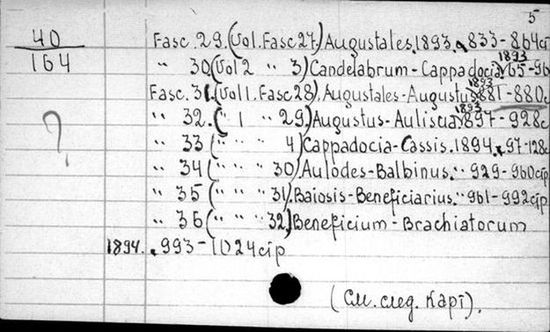 5
40
164
Fasc. 29. (Vol. Fasc 27.) Augustales. 1893. 833-864 cip
" 30. (Vol 2 " 3) Candelabrum-Cappadocia 1893 65-96
Fasc. 31. (Vol 1. Fasc 28). Augustales-Augustus 1893 881-880.
" 32. (" 1 " 29) Augustus-Auliscia. 1893 897-928 c
? " 33 (" " " 4) Cappadocia-Cassis. 1894. 97-128 c
" 34 (" " " 30) Aulodes-Balbinus. " 929-960 cip
" 35 (" " " 31) Baiosis-Beneficiarius. " 961-992 cip
" 36 (" " " 32) Beneficium-Brachiatorum
1894. 993-1024 cip
(См. след. карт).